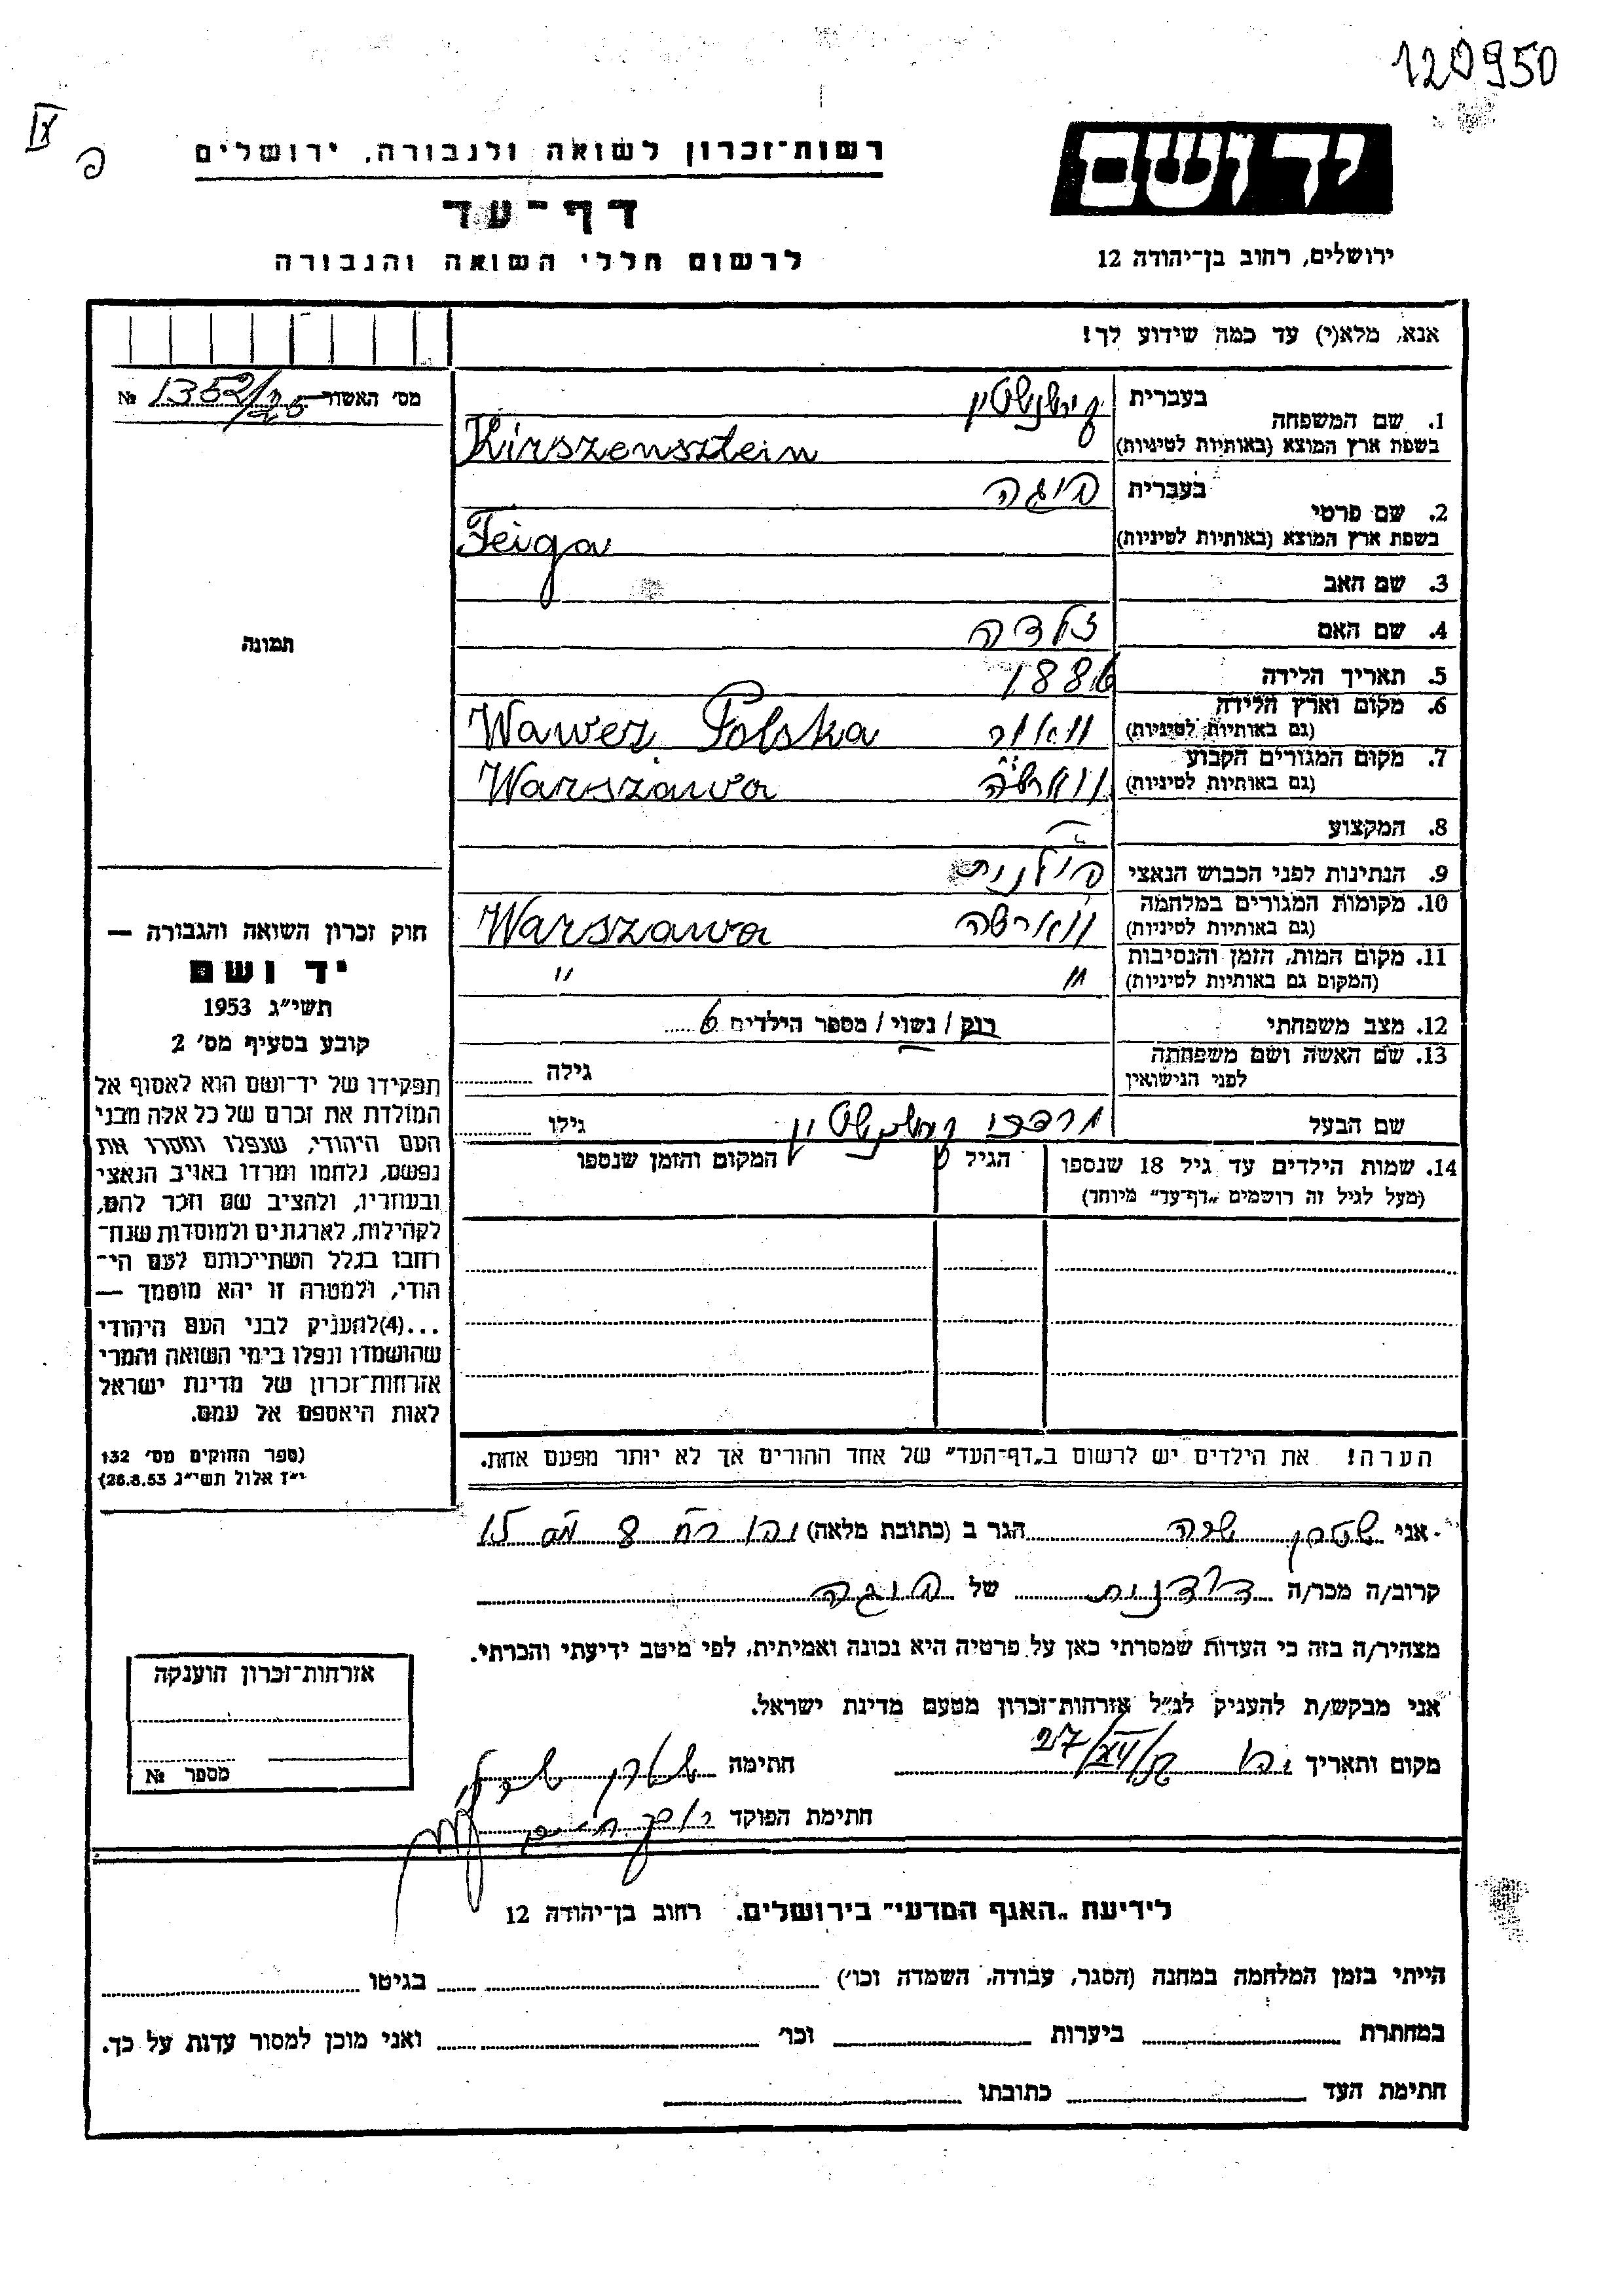 120950
IX
פ
ידושם
ירושלים, רחוב בן־יהודה 12
רשות־זכרון לשואה ולגבורה, ירושלים
דף־עד
לרשום חללי השואה והגבורה
אנא, מלא(י) עד כמה שידוע לך!
מס׳ האשור 1352/25 №
1. שם המשפחה בעברית קירשנשטיין
בשפת ארץ המוצא (באותיות לטיניות) Kirszensztein
2. שם פרטי בעברית פיגה
בשפת ארץ המוצא (באותיות לטיניות) Feiga
3. שם האב
4. שם האם זלדה
5. תאריך הלידה 1886
6. מקום וארץ הלידה
(גם באותיות לטיניות) וואור Wawer Polska
7. מקום המגורים הקבוע
(גם באותיות לטיניות) ווארשה Warszawa
8. המקצוע
9. הנתינות לפני הכבוש הנאצי פולנית
10. מקומות המגורים במלחמה
(גם באותיות לטיניות) ווארשה Warszawa
11. מקום המות, הזמן והנסיבות
(המקום גם באותיות לטיניות) " "
12. מצב משפחתי רוק / נשוי / מספר הילדים 6
13. שם האשה ושם משפחתה
לפני הנישואין גילה
שם הבעל מרדכי קירשנשטיין גילו
14. שמות הילדים עד גיל 18 שנספו הגיל המקום והזמן שנספו
(מעל לגיל זה רושמים „דף־עד״ מיוחד)
הערה! את הילדים יש לרשום ב„דף־העד״ של אחד ההורים אך לא יותר מפעם אחת.
תמונה
חוק זכרון השואה והגבורה —
יד ושם
תשי״ג 1953
קובע בסעיף מס׳ 2
תפקידו של יד־ושם הוא לאסוף אל
המולדת את זכרם של כל אלה מבני
העם היהודי, שנפלו ומסרו את
נפשם, נלחמו ומרדו באויב הנאצי
ובעוזריו, ולהציב שם וזכר להם,
לקהילות, לארגונים ולמוסדות שנח־
רבו בגלל השתייכותם לעם הי־
הודי, ולמטרה זו יהא מוסמך —
...(4)להעניק לבני העם היהודי
שהושמדו ונפלו בימי השואה והמרי
אזרחות־זכרון של מדינת ישראל
לאות היאספם אל עמם.
(ספר החוקים מס׳ 132
י״ז אלול תשי״ג 28.8.53)
אני שטרן שרה הגר ב (כתובת מלאה)
קרוב/ה מכר/ה של פיגה
מצהיר/ה בזה כי העדות שמסרתי כאן על פרטיה היא נכונה ואמיתית, לפי מיטב ידיעתי והכרתי.
אני מבקש/ת להעניק לנ״ל אזרחות־זכרון מטעם מדינת ישראל.
מקום ותאריך 27/XII חתימה שטרן שרה
חתימת הפוקד
אזרחות־זכרון הוענקה
מספר №
לידיעת „האגף המדעי״ בירושלים, רחוב בן־יהודה 12
הייתי בזמן המלחמה במחנה (הסגר, עבודה, השמדה וכו׳) בגיטו
במחתרת ביערות וכו׳ ואני מוכן למסור עדות על כך.
חתימת העד כתובתו